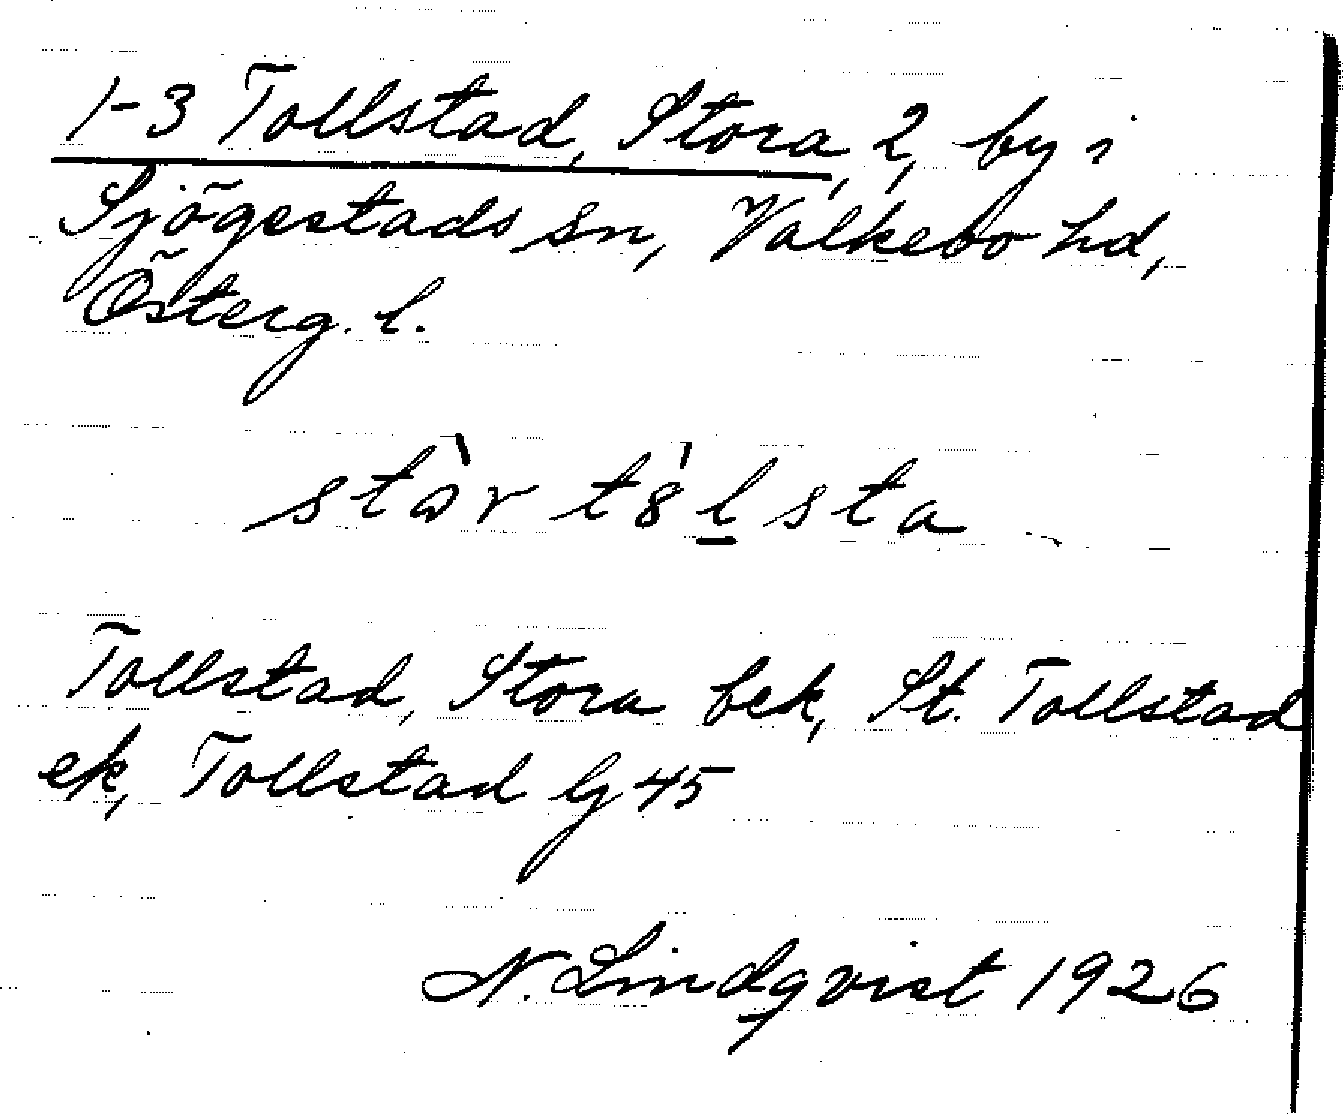 1-3 Tollstad, Stora, 2, by i
Sjögestads sn, Valkebo hd,
Österg. l.
stɷ̀r tȯ́lsta
Tollstad, Stora bek, St. Tollstad
ek, Tollstad Gj 45
N. Lindqvist 1926